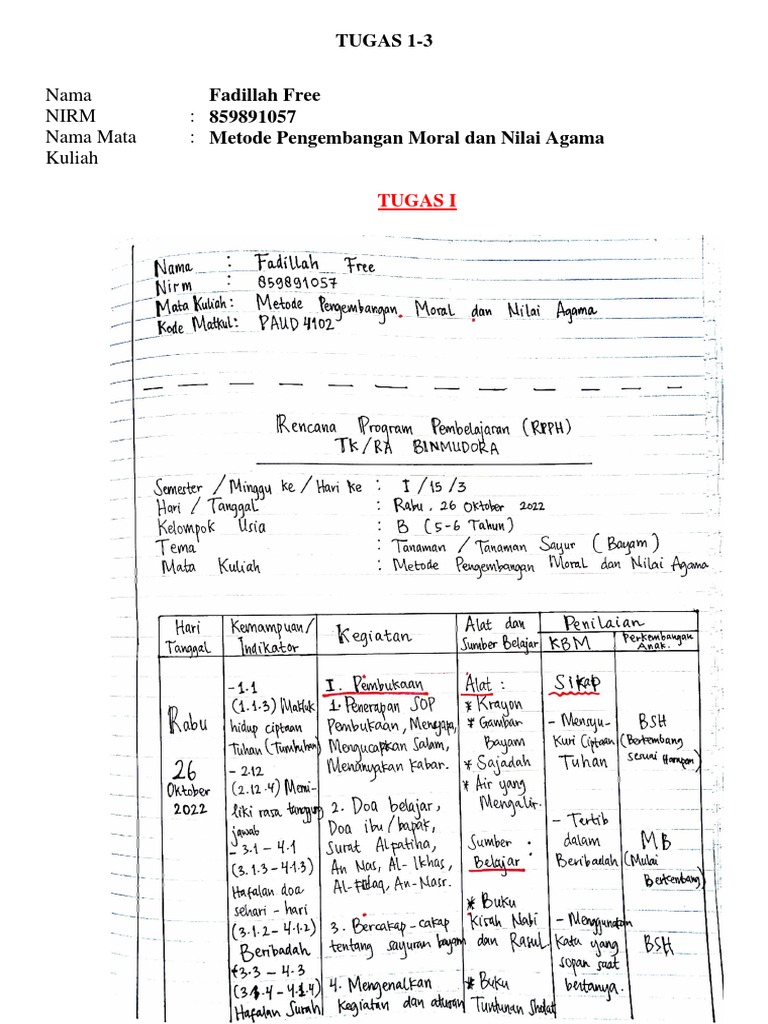 TUGAS 1-3
Nama Fadillah Free
NIRM : 859891057
Nama Mata : Metode Pengembangan Moral dan Nilai Agama
Kuliah
TUGAS I
Nama : Fadillah Free
Nirm : 859891057
Mata Kuliah : Metode Pengembangan Moral dan Nilai Agama
Kode Matkul : PAUD 4102
Rencana Program Pembelajaran (RPPH)
TK/RA BINMUDORA
Semester / Minggu ke / Hari ke : I / 15 / 3
Hari / Tanggal : Rabu, 26 Oktober 2022
Kelompok Usia : B (5-6 Tahun)
Tema : Tanaman / Tanaman Sayur (Bayam)
Mata Kuliah : Metode Pengembangan Moral dan Nilai Agama
Hari
Tanggal
Kemampuan/
Indikator
Kegiatan
Alat dan
Sumber Belajar
Penilaian
KBM
Perkembangan
Anak.
Rabu
26
Oktober
2022
- 1.1
(1.1.3) Makluk
hidup ciptaan
Tuhan (Tumbuhan)
- 2.12
(2.12.4) Memi-
liki rasa tanggung
jawab
- 3.1 - 4.1
(3.1.3 - 4.1.3)
Hafalan doa
sehari - hari
(3.1.2 - 4.1.2)
Beribadah
3.3 - 4.3
(3.1.4 - 4.1.4)
Hafalan Surah
I. Pembukaan
1. Penerapan SOP
Pembukaan, Menyapa,
Mengucapkan Salam,
Menanyakan kabar.
2. Doa belajar,
Doa ibu/bapak,
Surat Alfatiha,
An Nas, Al-Ikhas,
Al-Falaq, An-Nasr.
3. Bercakap-cakap
tentang sayuran bayam
4. Mengenalkan
kegiatan dan aturan
Alat :
* Krayon
* Gambar
Bayam
* Sajadah
* Air yang
Mengalir.
Sumber :
Belajar
* Buku
Kisah Nabi
dan Rasul
* Buku
Tuntunan Sholat
Sikap
- Mensyu-
Kuri Ciptaan
Tuhan
- Tertib
dalam
Beribadah
- Menggunakan
Kata yang
sopan saat
bertanya.
BSH
(Berkembang
sesuai Harapan)
MB
(Mulai
Berkembang)
BSH